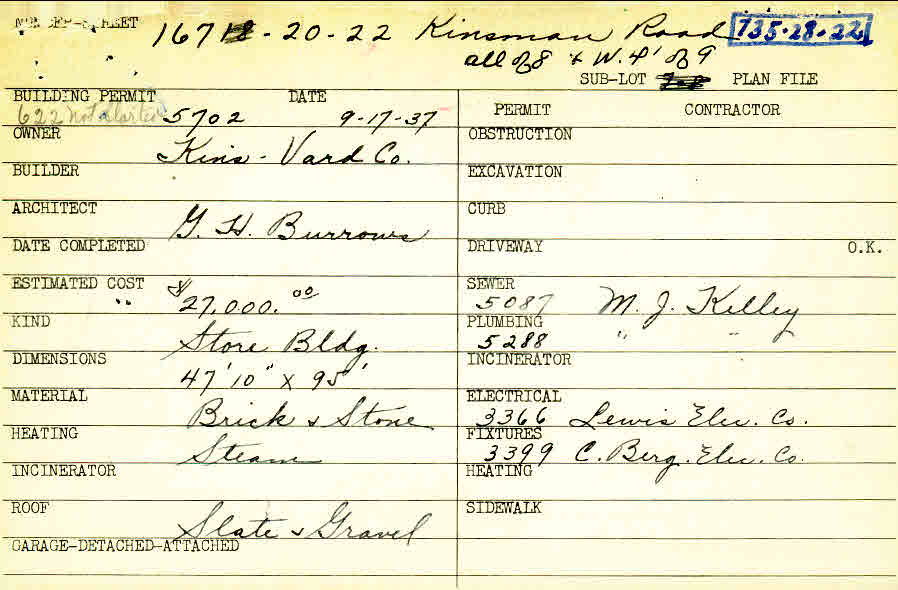 NUMBER-STREET 16718-20-22 Kinsman Road 735-28-22
all of 8 & W. 4' of 9
SUB-LOT PLAN FILE
BUILDING PERMIT DATE PERMIT CONTRACTOR
622 Not started 5702 9-17-37
OWNER Kins-Vard Co. OBSTRUCTION
BUILDER EXCAVATION
ARCHITECT G. H. Burrows CURB
DATE COMPLETED DRIVEWAY O.K.
ESTIMATED COST $27,000.00 SEWER
" 5087 M. J. Kelley
KIND Store Bldg. PLUMBING
5288 " "
DIMENSIONS 47'10" X 95' INCINERATOR
MATERIAL Brick & Stone ELECTRICAL
3366 Lewis Elec. Co.
HEATING Steam FIXTURES
3399 C. Berg. Elec. Co.
INCINERATOR HEATING
ROOF Slate & Gravel SIDEWALK
GARAGE-DETACHED-ATTACHED